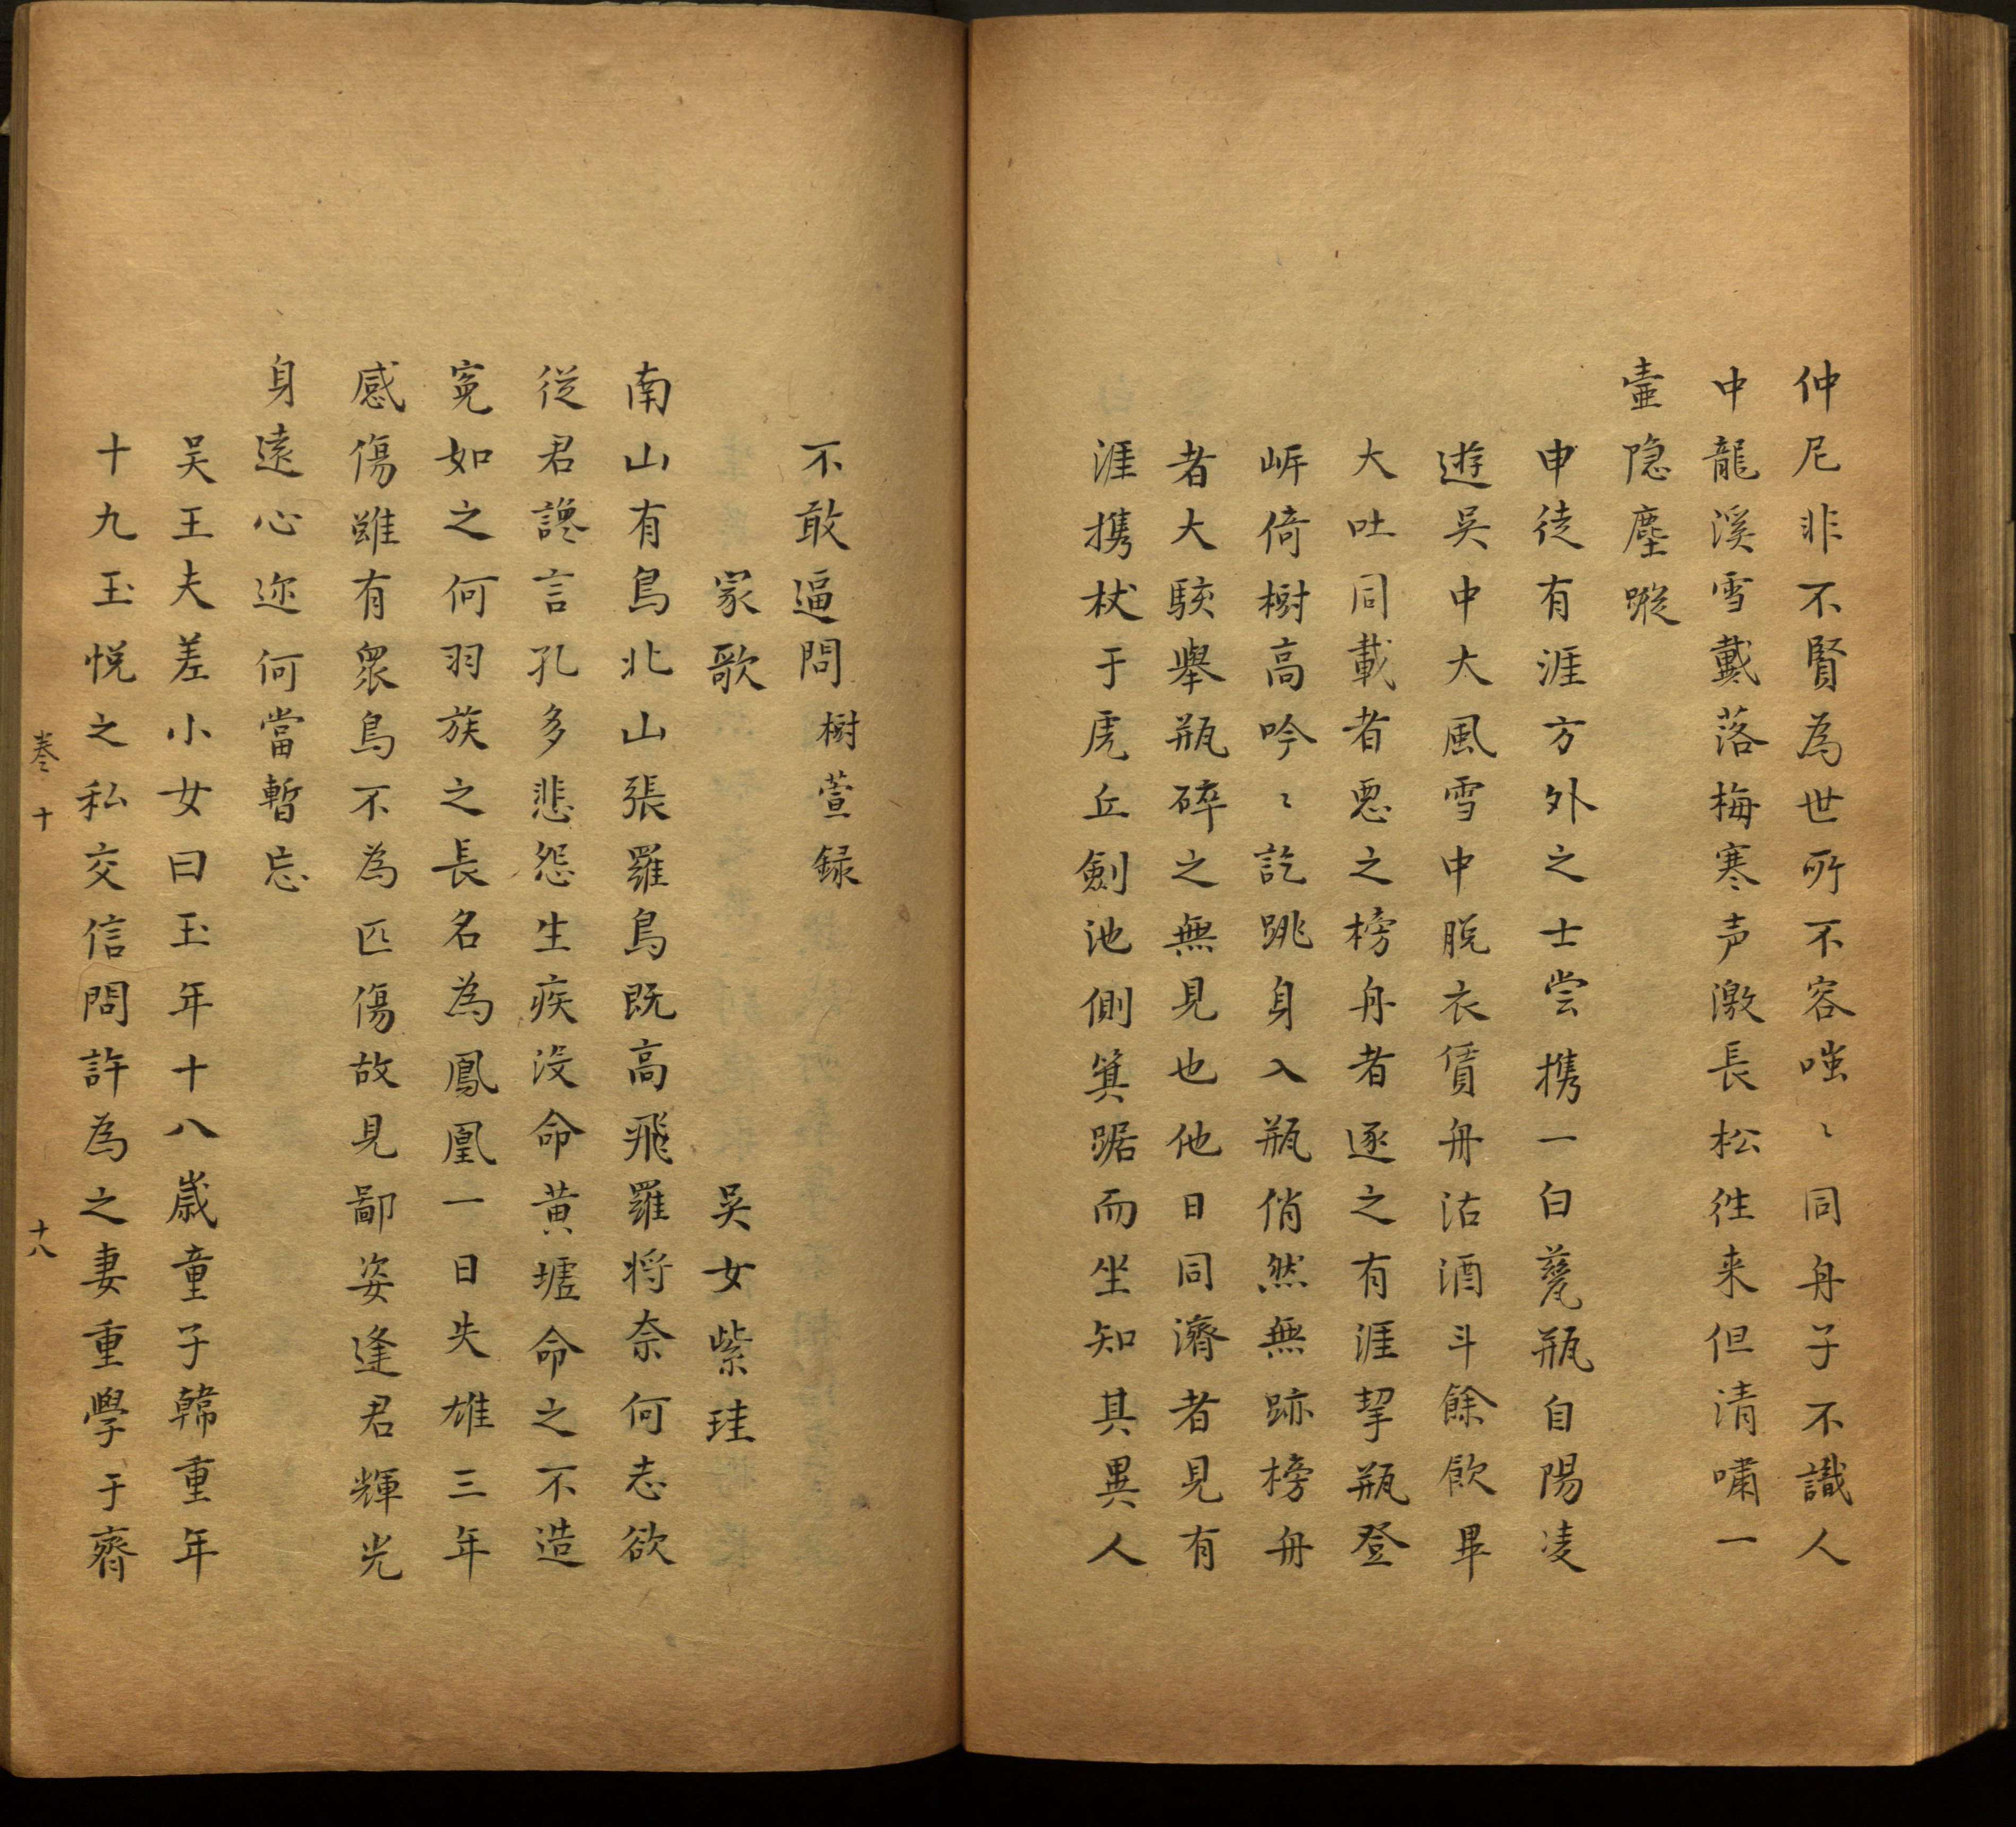 仲尼非不賢為世所不容嗤〻同舟子不識人
中龍溪雪戴落梅寒声激長松徃来但清嘯一
壷隐塵蹤
申徒有涯方外之士尝携一白甆瓶自陽凌
遊吴中大風雪中脱衣賃舟沽酒斗餘飲畢
大吐同載者惡之榜舟者逐之有涯挈瓶登
岍倚樹高吟〻訖跳身入瓶俏然無跡榜舟
者大駭舉瓶碎之無見也他日同濟者見有
涯携杖于虎丘劍池側箕踞而坐知其異人
不敢逼問樹萱録
冡歌 吴女紫珪
南山有鳥北山張羅鳥既高飛羅将奈何志欲
從君讒言孔多悲怨生疾没命黄壚命之不造
寃如之何羽族之長名為鳳凰一日失雄三年
感傷雖有衆鳥不為匹傷故見鄙姿逢君輝光
身遠心迩何當暫忘
吴王夫差小女曰玉年十八歳童子韓重年
十九玉悅之私交信問許為之妻重學于齊
卷十 十八